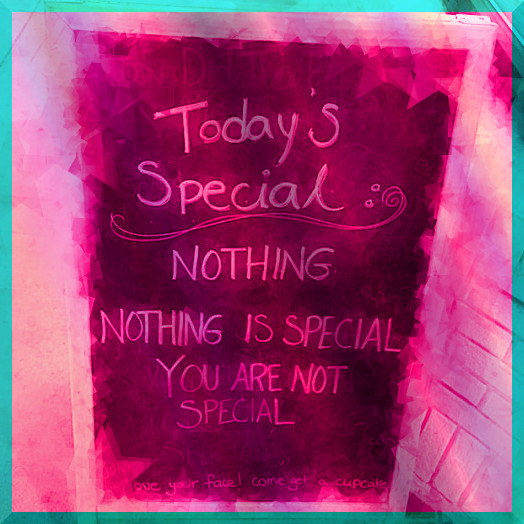 Today's
Special :
NOTHING
NOTHING IS SPECIAL
YOU ARE NOT
SPECIAL
love your face! come get a cupcake